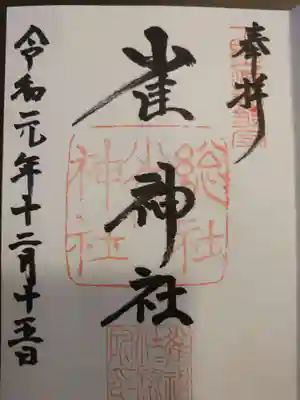 奉拝
雀神社
令和元年十二月十五日
総社
神社